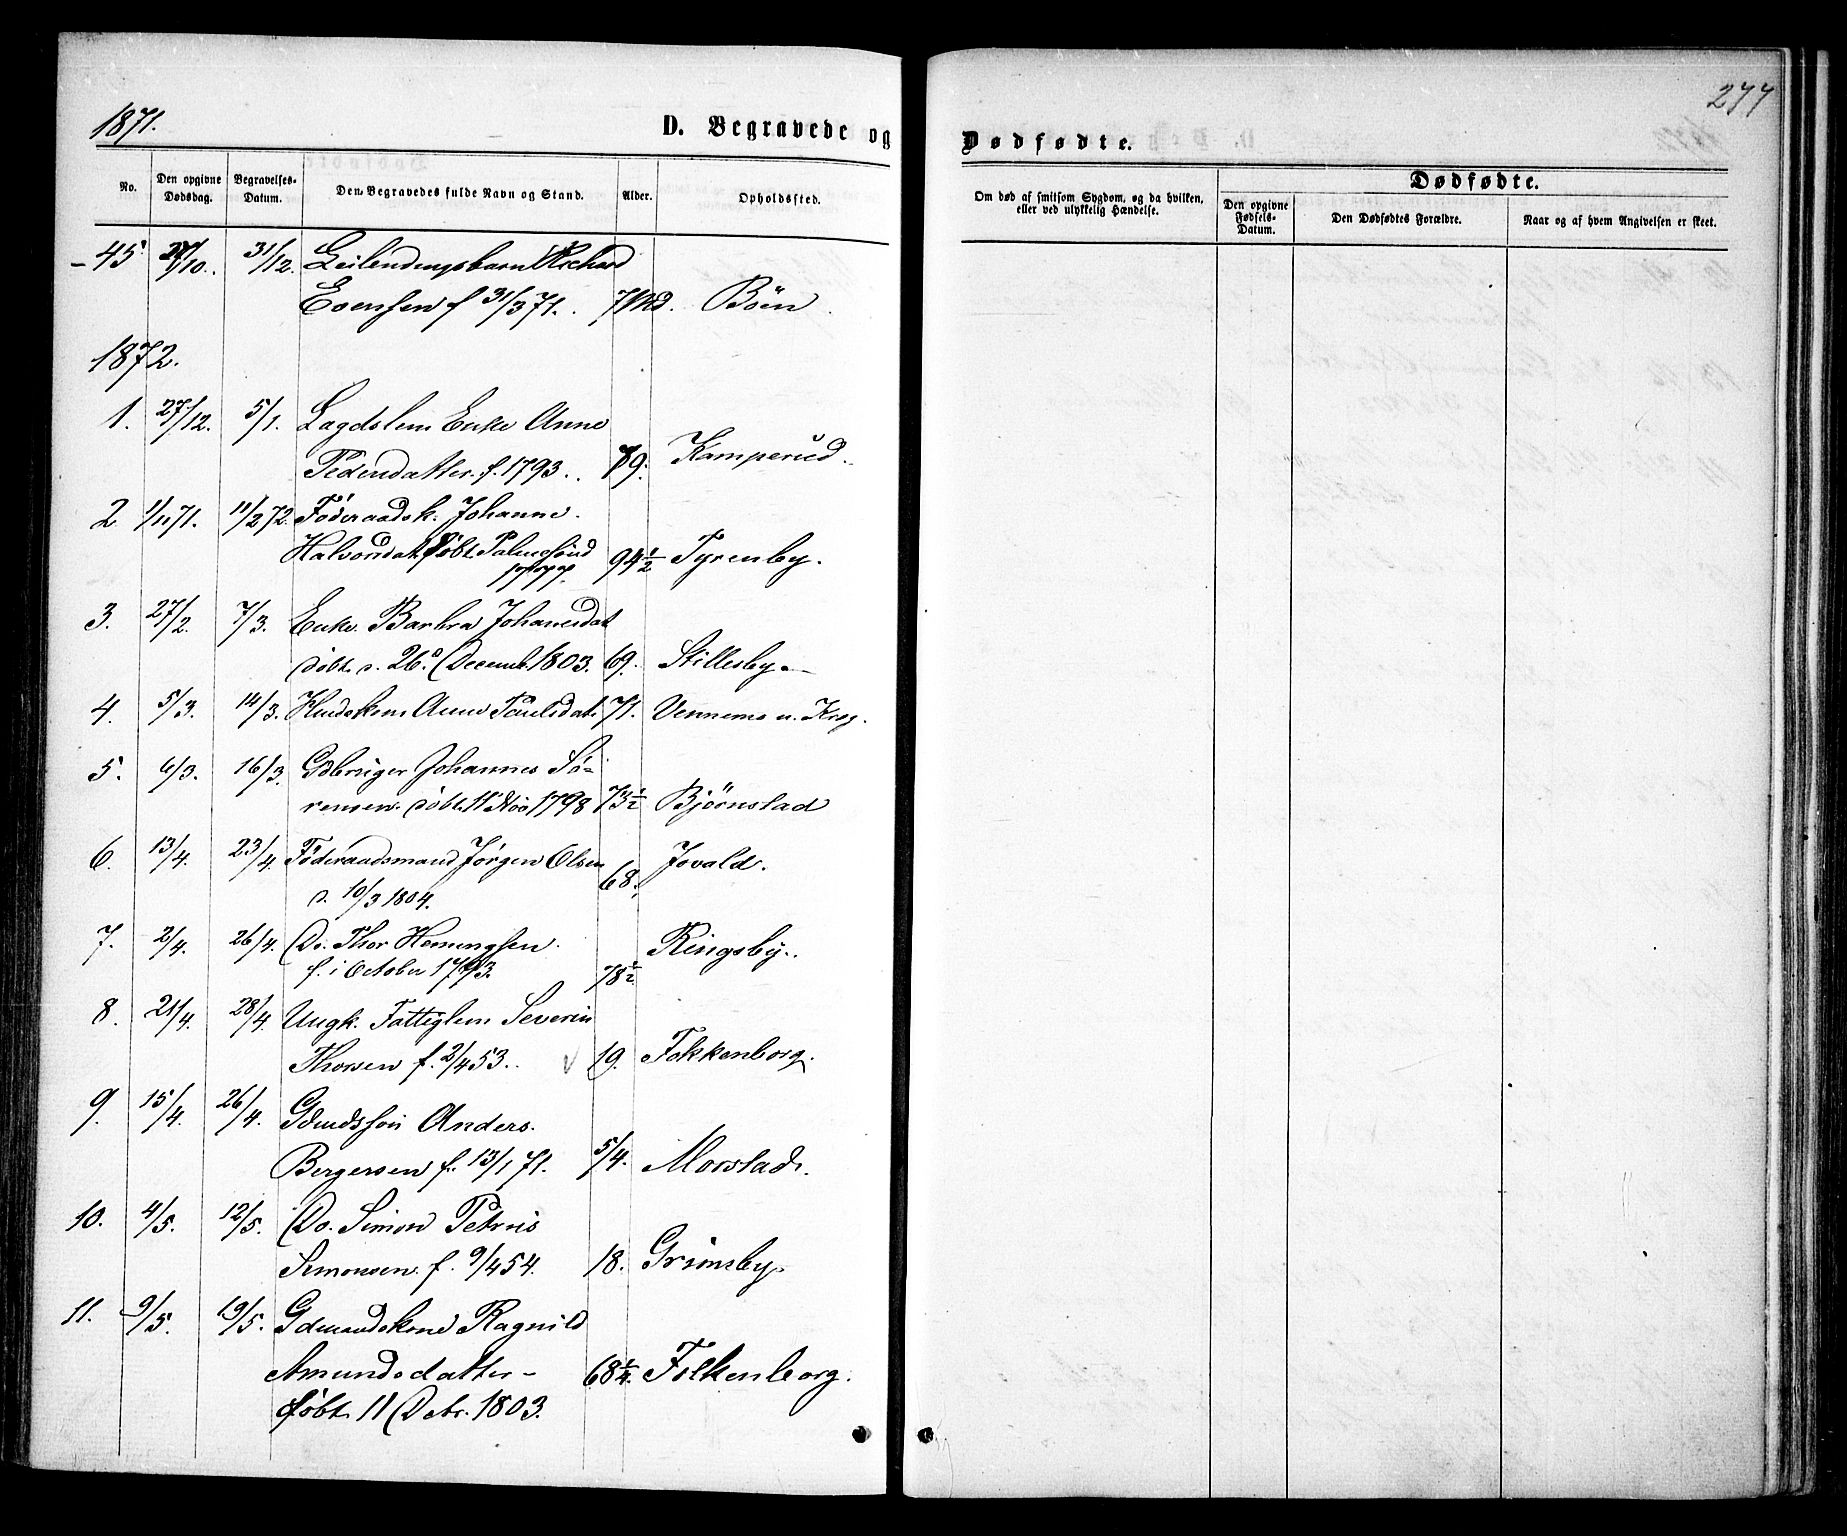 1871.
D. Begravede og
No.
Den opgivne Dødsdag.
Begravelses-Datum.
Den Begravedes fulde Navn og Stand.
Alder.
Opholdssted.
45 /10. 31/12. Leilendingsbarn Richard
Evensen f 31/3 71. 7 Md. Böen
1872.
1. 27/12. 5/1. Lægdslem Enke Anne
Pedersdatter f. 1793. 79. Kamperud.
2 1/11 71. 11/2 72. Föderaadsk. Johanne
Halvorsdat döbt Palmesönd 94 1/2 Tyrenby.
1777.
3. 27/2. 7/3. Enke Barbra Johannesdat
döbt d. 26. Decemb. 1803. 69. Stillesby
4. 5/3. 14/3. Anne Paulsdat. 71. Vennemo u. Krog.
5. 6/3. 16/3. Gdbruger Johannes Sö-
rensen döbt 11 Nov 1798 73 1/2 Bjørnstad
6. 13/4. 23/4. Föderaadsmand Jörgen Olsen Jovald.
d. 10/3 1804. 68.
7. 2/4. 26/4. Do. Thor Hemingsen Ringsby.
f. i October 1793. 78 1/2
8. 21/4. 28/4. Ungk. Fattiglem Severin
Thorsen f. 2/4 53. 19. Folkenborg.
9. 15/4. 26/4. Gdmdssön Anders
Bergersen f. 13/1 71. 5/4. Morstad.
10. 4/5. 12/5. Do. Simon Petrus
Simonsen f. 9/4 54. 18. Grimsby
11. 9/5. 19/5. Gdmandskone Ragnild
Amundsdatter - 68 1/2. Folkenborg.
döbt 11 Debr. 1803.
277
Dødfødte.
Om død af smitsom Sygdom, og da hvilken,
eller ved ulykkelig Hændelse.
Dødfødte.
Den opgivne Fødsels-Datum.
Den Dødfødtes Forældre.
Naar og af hvem Angivelsen er skeet.